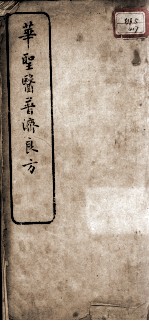 華聖醫普濟良方